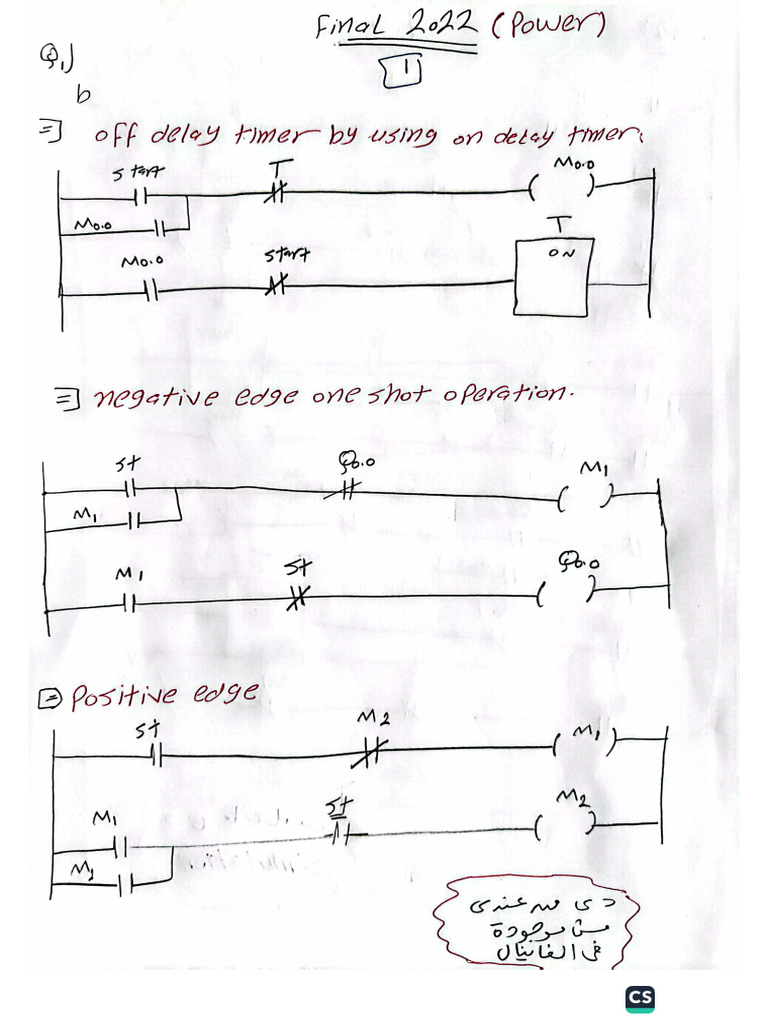 Final 2022 (Power)
1
Q1)
b
⇒] off delay timer by using on delay timer.
Start
T
M0.0
M0.0
T
M0.0
Start
ON
⇒] negative edge one shot operation.
St
Q0.0
M1
M1
M1
St
Q0.0
⇒] Positive edge
St
M2
M1
M1
St
M2
M2
دى من عندى
مش موجودة
فى الفاينال
CS